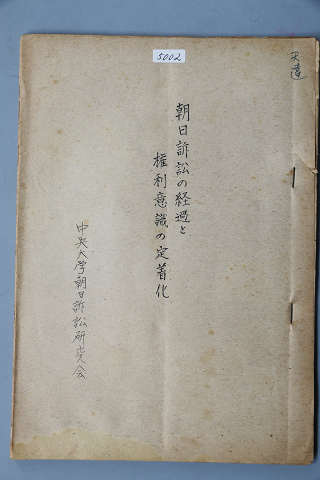 5002
天達
朝日訴訟の経過と
権利意識の定着化
中央大学朝日訴訟研究会